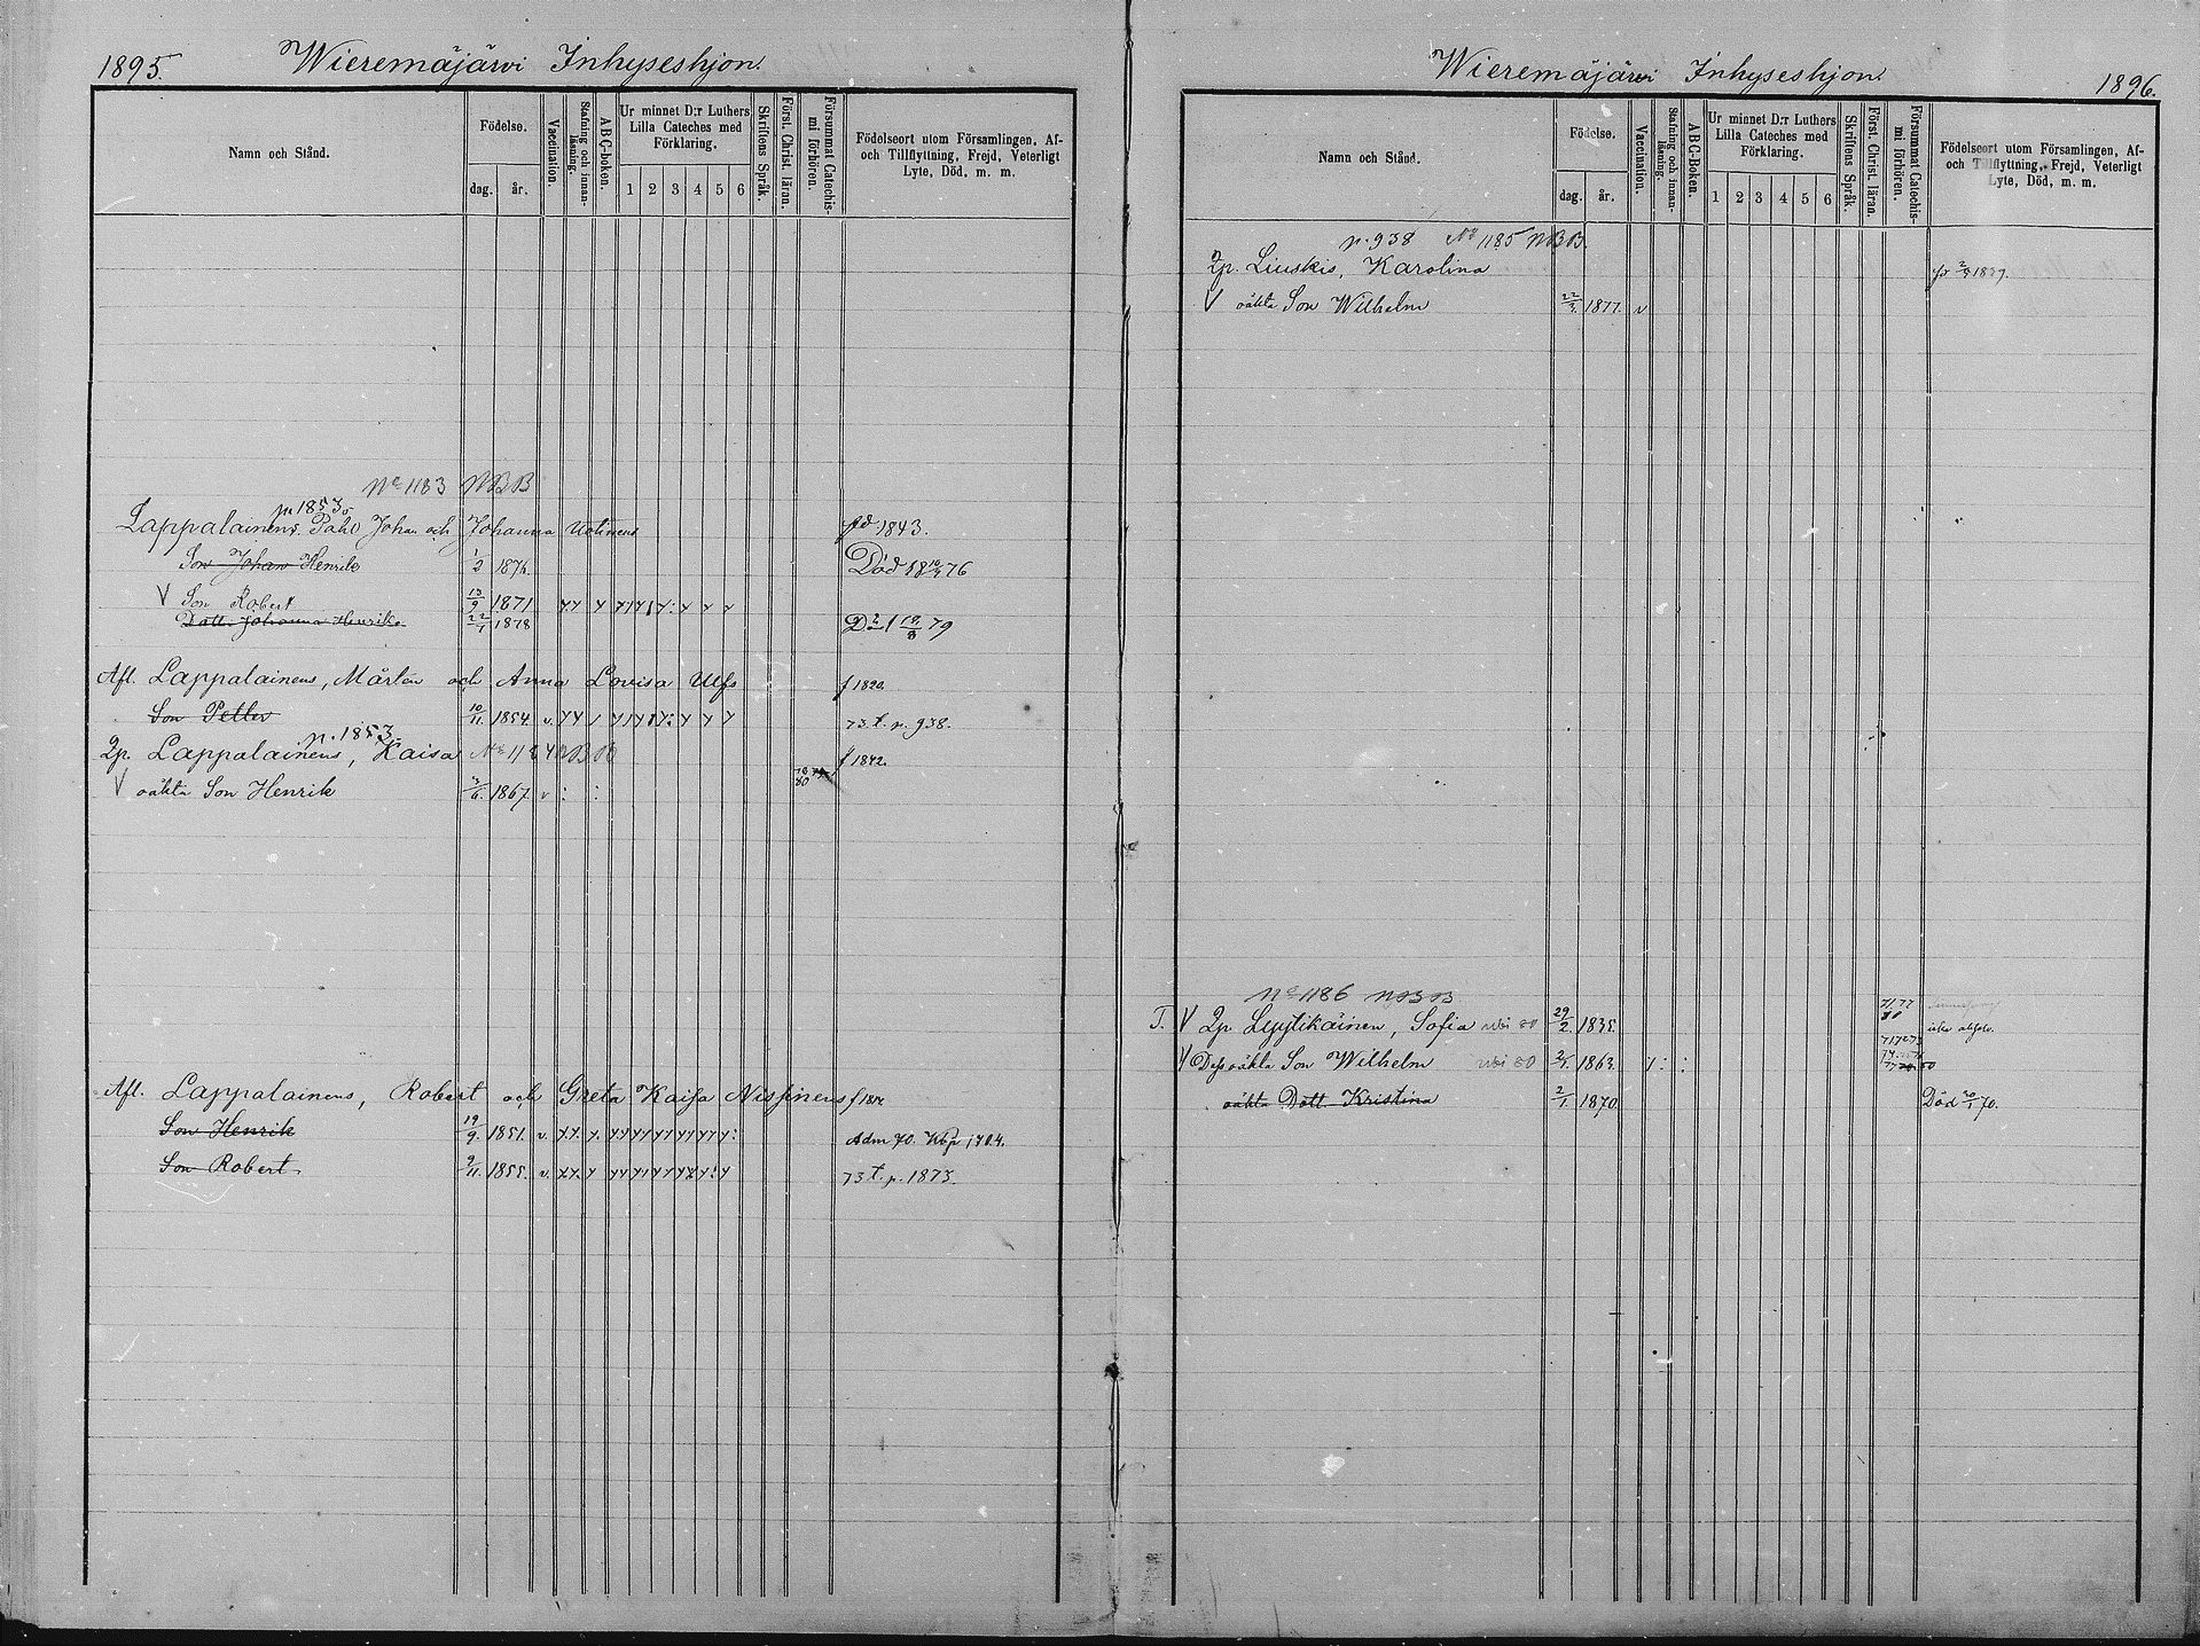 1895. Wieremäjärvi Inhyseshjon.
Namn och Stånd.
Födelse.
dag. år.
Vaccination.
Stafning och innan-läsning.
ABC-boken.
Ur minnet D:r Luthers Lilla Cateches med Förklaring.
1 2 3 4 5 6
Skriftens Språk.
Först. Christ. läran.
Försummat Catechis-mi förhören.
Födelseort utom Församlingen, Af- och Tillflyttning, Frejd, Veterligt Lyte, Död, m. m.
No 1183 NBB
p. 1853.
Lappalainens, Pahl Johan och Johanna fd 1843.
Son Johan Henrik 1/2 1874. Död 76
V Son Robert 13/9 1871
Dott. Johanna Henrika 22/1 1878 79
Afl. Lappalainens, Mårten och Anna Lovisa Ulfs f 1820.
Son Petter 10/11. 1854. v. 73 t. p. 938.
p. 1853.
Qp. Lappalainens, Kaisa No 1184 NBB f 1842.
V oäkta Son Henrik 3/6. 1867. v : :
Afl. Lappalainens, Robert och Greta Kaisa Nissinens
Son Henrik 19/9. 1851. v. Adm 70.
Son Robert 9/11. 1855. v. 73 t. p. 1873.
Wieremäjärvi Inhyseshjon. 1896.
Namn och Stånd.
Födelse.
dag. år.
Vaccination.
Stafning och innan-läsning.
ABC-Boken.
Ur minnet D:r Luthers Lilla Cateches med Förklaring.
1 2 3 4 5 6
Skriftens Språk.
Först. Christ. läran.
Försummat Catechis-mi förhören.
Födelseort utom Församlingen, Af- och Tillflyttning, Frejd, Veterligt Lyte, Död, m. m.
p. 938 No 1185 NBB.
Qp. Liuskis, Karolina
V oäkta Son Wilhelm 1877. v
No 1186 NBB
T. V Qp Lyytikäinen, Sofia 80 29/2. 1835.
V Dess oäkta Son Wilhelm 80 1863.
oäkta Dott. Kristina 2/1. 1870. Död 20/1 70.